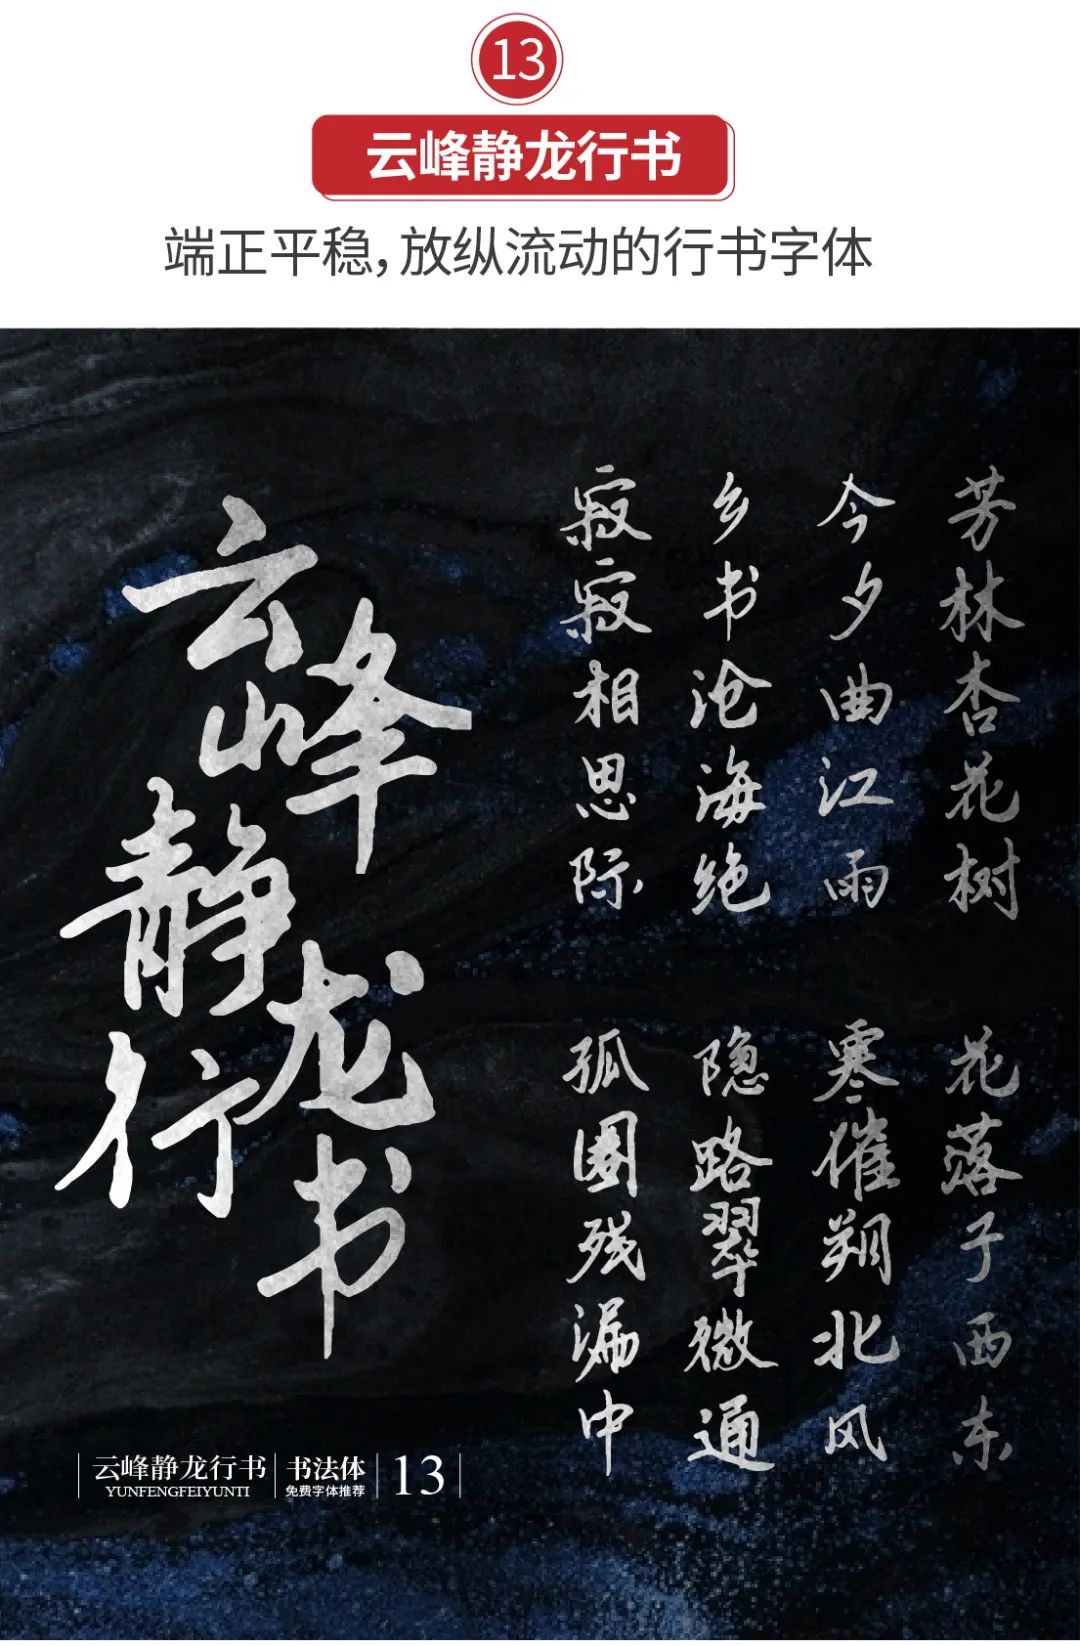 13
云峰静龙行书
端正平稳，放纵流动的行书字体
云峰静龙行书
芳林杏花树
花落子西东
今夕曲江雨
寒催朔北风
乡书沧海绝
隐路翠微通
寂寂相思际
孤 残漏中
云峰静龙行书
YUNFENGFEIYUNTI
书法体
免费字体推荐
13